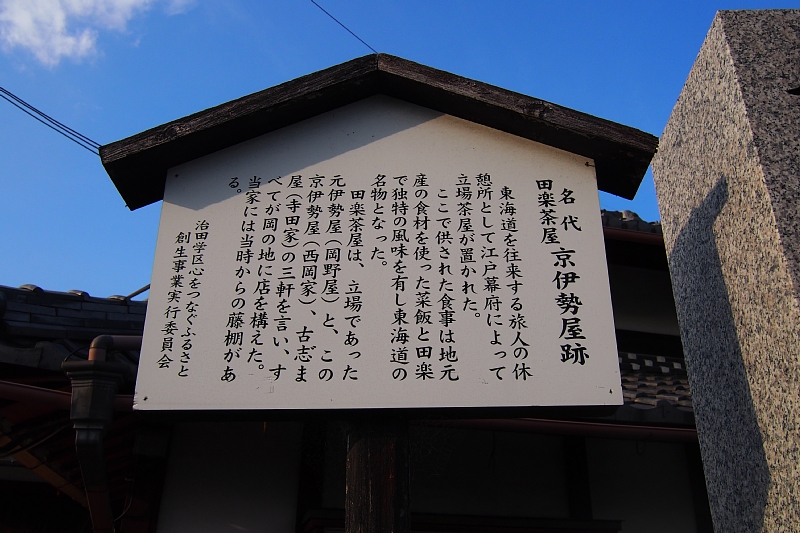 名代
田楽茶屋 京伊勢屋跡
東海道を往来する旅人の休
憩所として江戸幕府によって
立場茶屋が置かれた。
ここで供された食事は地元
産の食材を使った菜飯と田楽
で独特の風味を有し東海道の
名物となった。
田楽茶屋は、立場であった
元伊勢屋(岡野屋)と、この
京伊勢屋(西岡家)、古志ま
屋(寺田家)の三軒を言い、す
べてが岡の地に店を構えた。
当家には当時からの藤棚があ
る。
治田学区心をつなぐふるさと
創生事業実行委員会